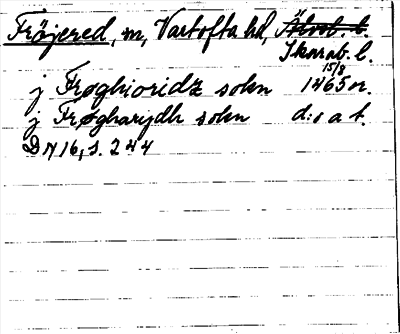 Fröjered, m, Vartofta hd, Älvsb. l.
Skarab. l.
15/8
j Frøghioridz sokn 1465 n.
j Frøgharydh sokn d:o a t.
DN 16, s. 244